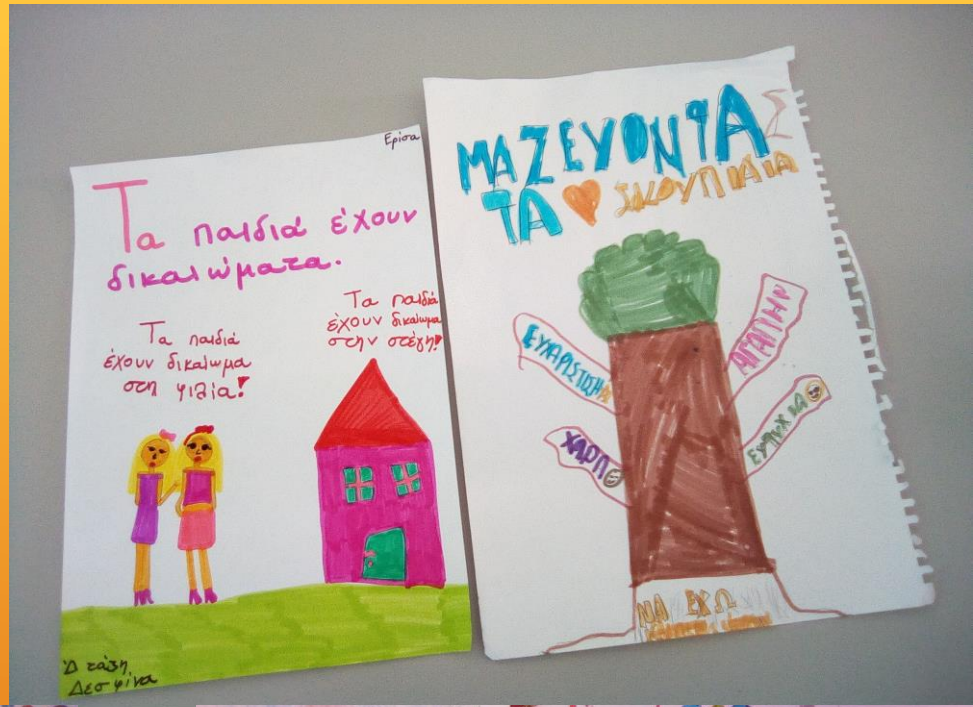 Ερίσα
Τα παιδιά έχουν
δικαιώματα.
Τα παιδιά
έχουν δικαίωμα
στη φιλία!
Τα παιδιά
έχουν δικαίωμα
στην στέγη!
Δ τάξη
ΜΑΖΕΥΟΝΤΑΣ
ΤΑ ΣΚΟΥΠΙΔΙΑ
ΕΥΧΑΡΙΣΤΩΣΗ
ΑΓΑΠΗ
ΧΑΡΠ
ΝΑ ΕΧΩ